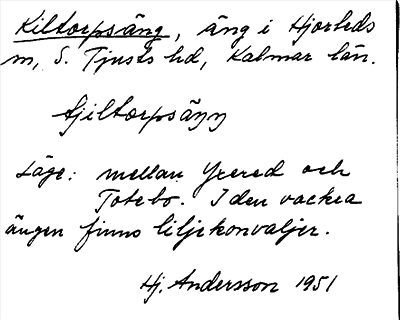 Kiltorpsäng, äng i Hjorteds
sn, S. Tjusts hd, Kalmar län.
Läge: mellan Yxered och
Totebo. I den vackra
ängen finns liljekonvaljer.
Hj. Andersson 1951